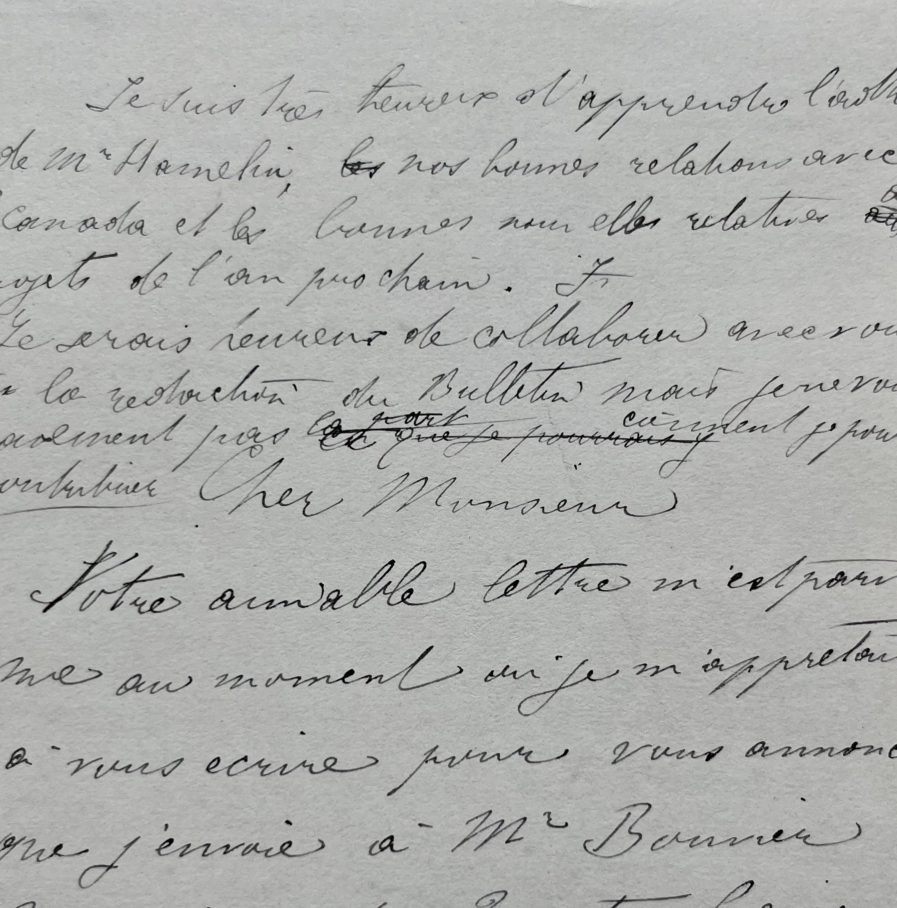 Je suis très heureux d'apprendre l'adh
de Mr Hamelin, les nos bonnes relations avec
Canada et les bonnes nouvelles relatives
ojets de l'an prochain. J
Je serais heureux de collaborer avec vou
la redaction du Bulletin mais je ne voi
alement pas la part ce que je pourrais y comment je pour
ontribuer Cher Monsieur
Votre aimable lettre m'est parv
nue au moment où je m'appretai
à vous ecrire pour vous annonc
que j'envoie à Mr Bouvier